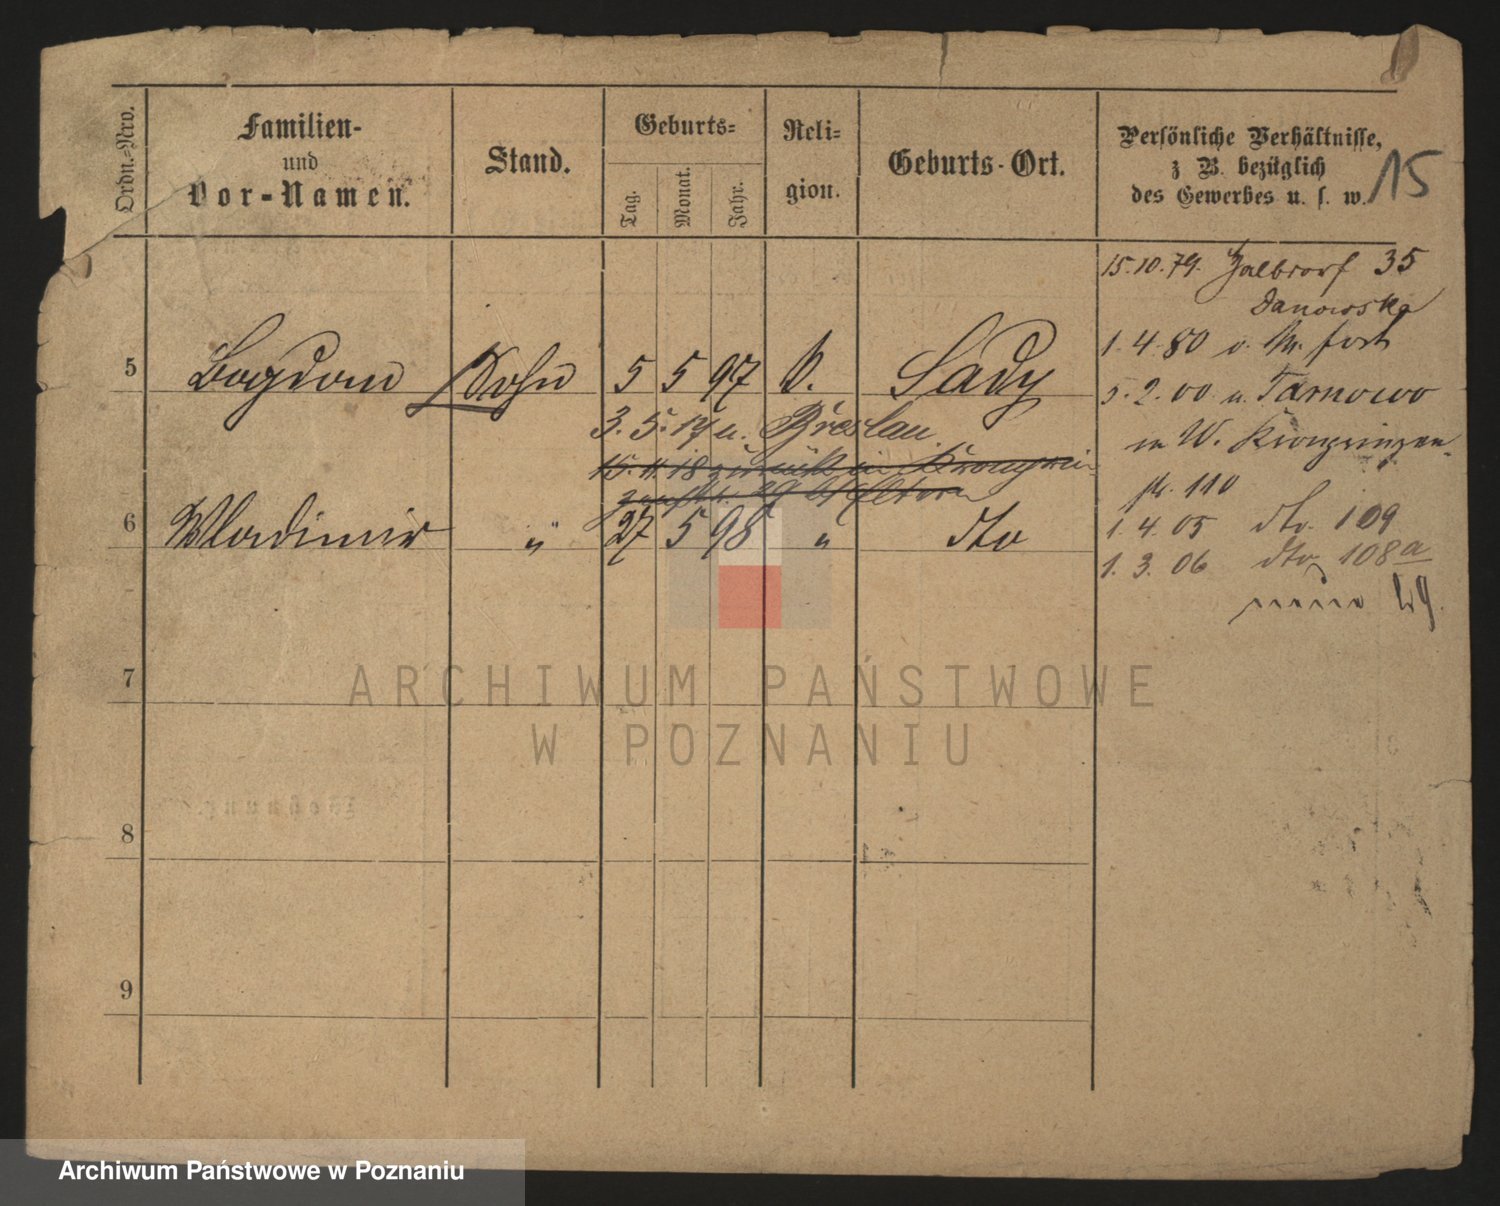 Ordn.-Nro.
Familien-
und
Vor-Namen.
Stand.
Geburts-
Tag.
Monat.
Jahr.
Reli-
gion.
Geburts-Ort.
Persönliche Verhältnisse,
z B. bezüglich
des Gewerbes u. s. w.
15
15.10.79. Halbdorf 35
Danowska
1.4.80 v. fort
5.2.00 u. Tarnowo
in W. Kronprinzen-
str. 110
1.4.05 dto. 109
1.3.06 dto 108a
5 Bogdan Sohn 5 5 97 k. Sady
3.5.17 u. Breslau
15.11.18 zurück in Kronprin-
29
6 Wladimir " 27 5 98 " dto
7
8
9
ARCHIWUM PAŃSTWOWE
W POZNANIU
Archiwum Państwowe w Poznaniu